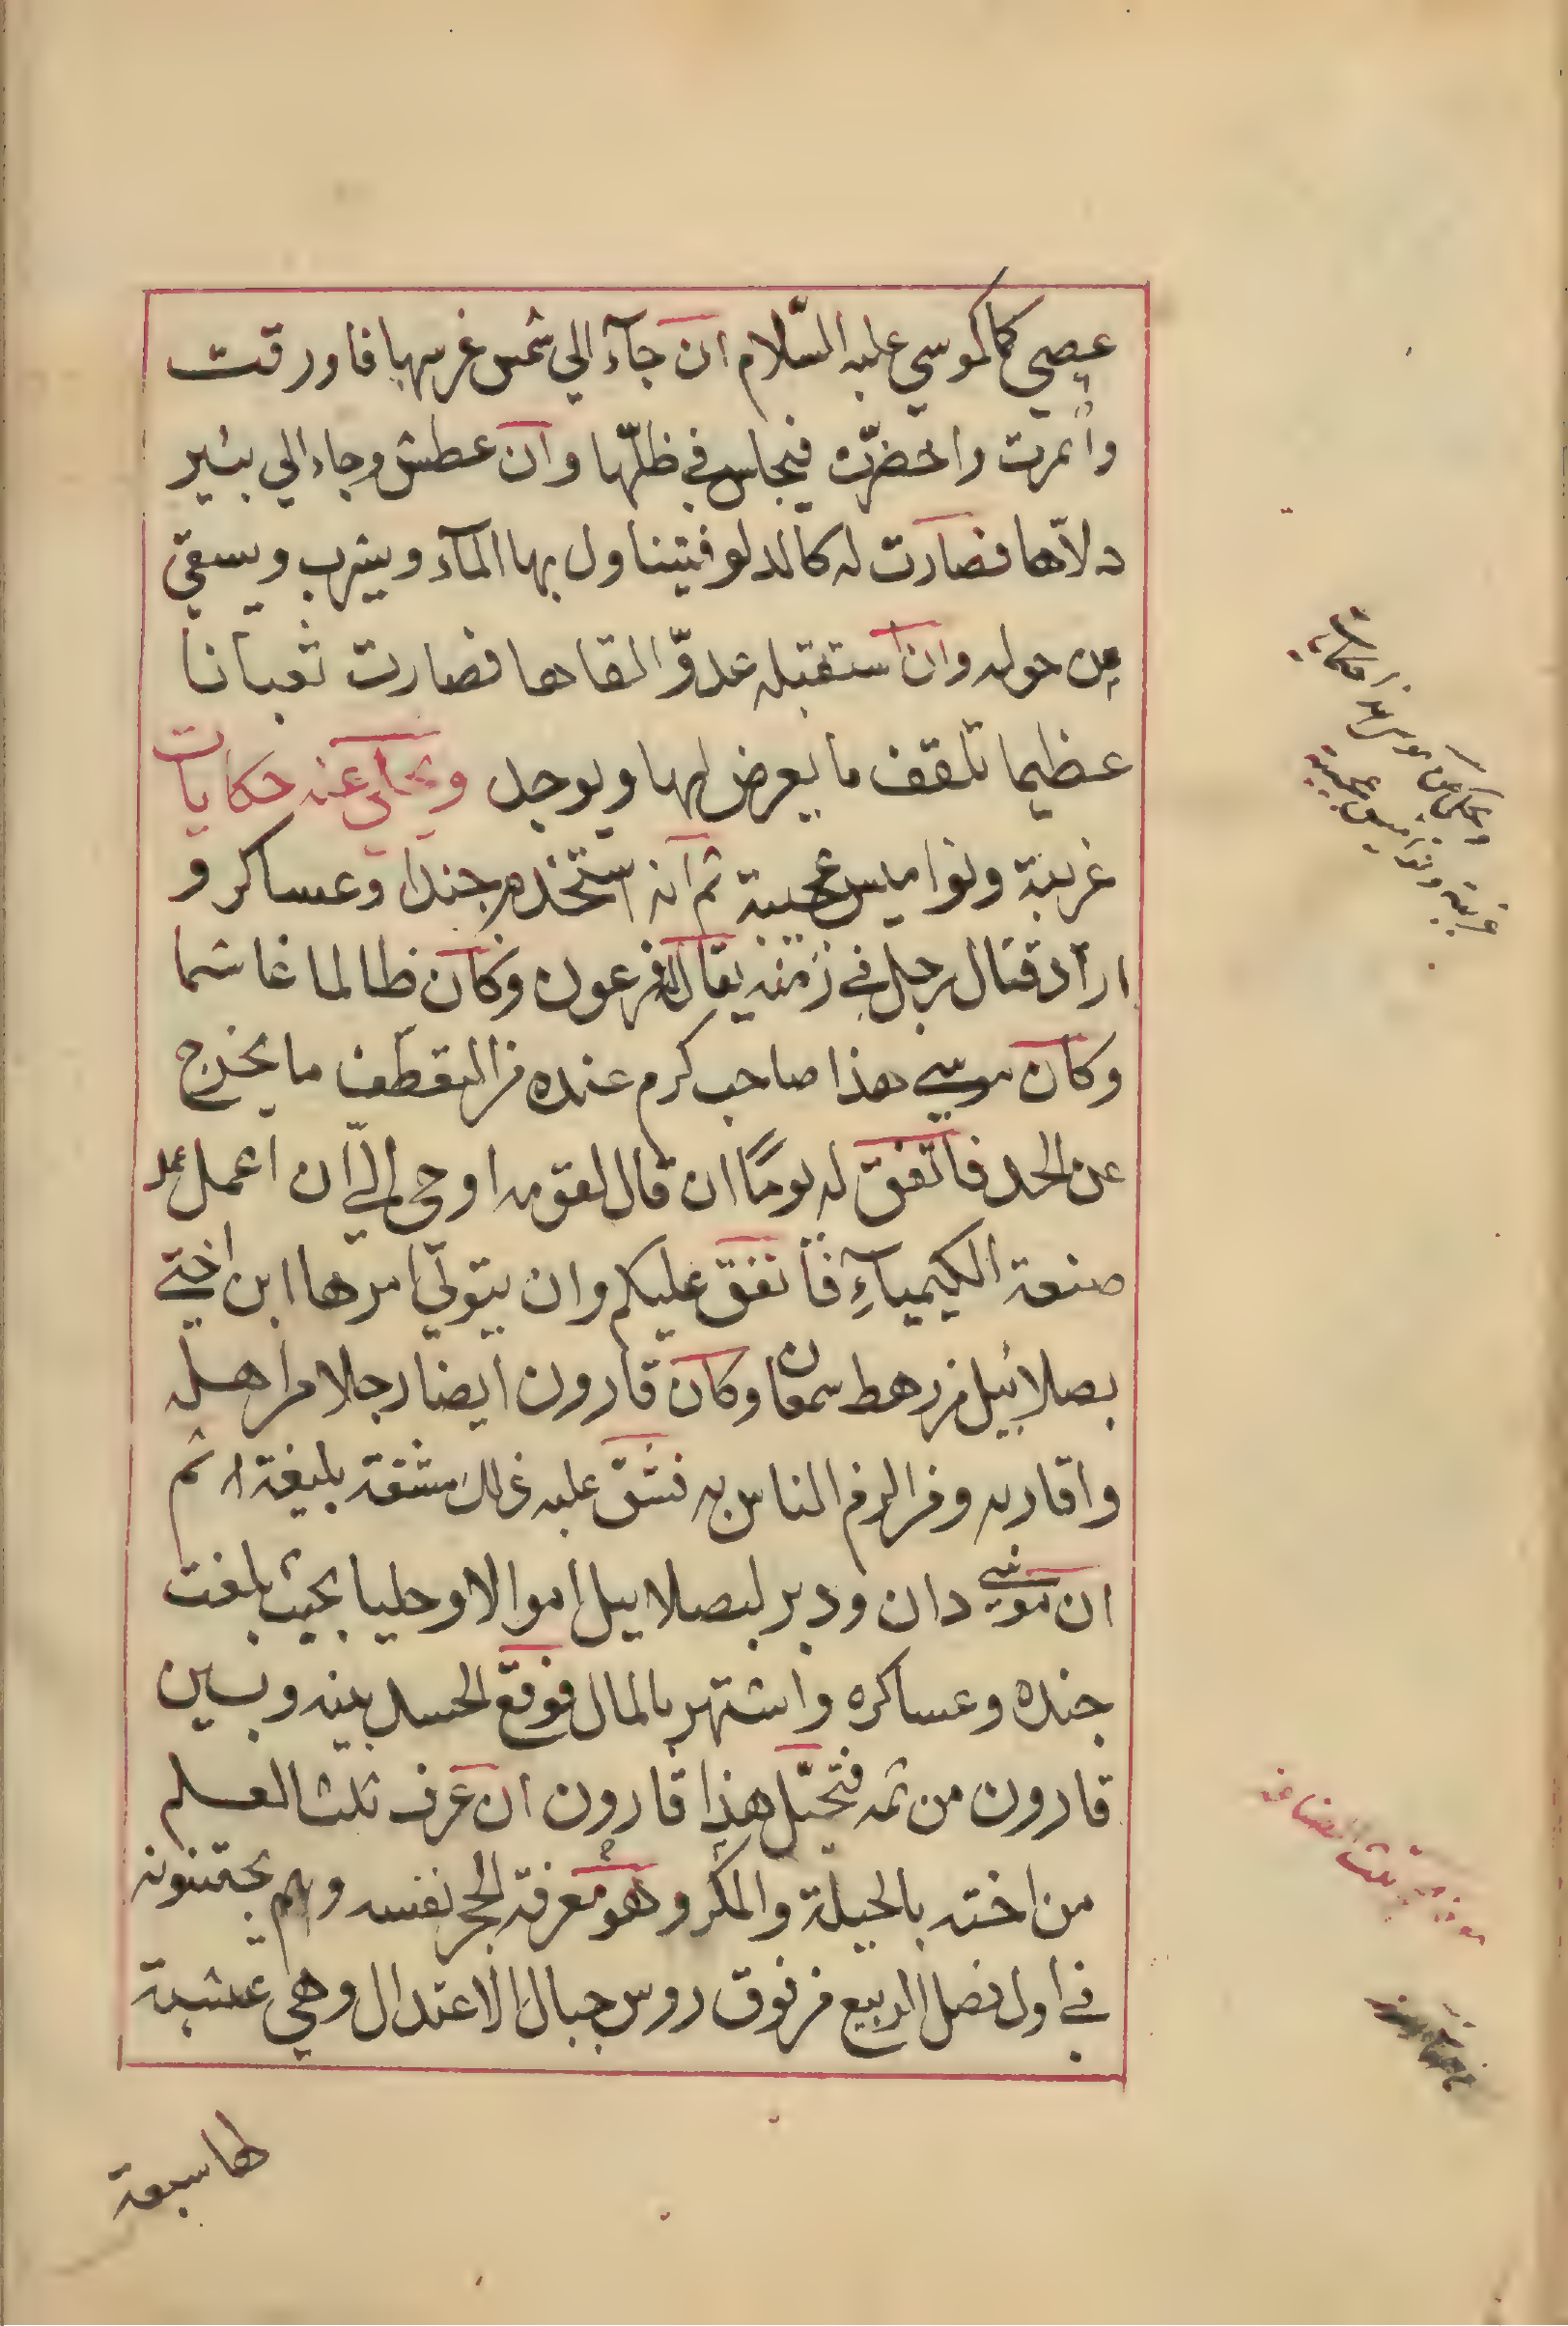 عصي كما لموسي عليه السّلام ان جآء الي شمس غرسها فاورقت
واثمرت واخضرّت فيجلس في ظلّها وان عطش وجاء الي بئير
دلاّها فصارت له كالدلو فيتناول بها المآء ويشرب ويسقي
من حوله وان استقبله عدوّ القاها فصارت ثعبانا
عظيما تلقف ما يعرض لها ويوجد ويحكي عنه حكايات
غريبة ونواميس عجيبة ثم انه استخدم جندا وعساكر و
اراد قتال رجل في زمنه يقال له فرعون وكان ظالما غاشما
وكان موسي هذا صاحب كرم عنده من التقطف ما يخرج
عن الحد فاتفق له يومًا ان قال لقومه اوحي اليّ ان اعمل عمد
صنعة الكيميآءِ فأنفق عليكم وان يتولّي امرها ابن اختي
بصلائيل من رهط سمعان وكان قارون ايضا رجلا من اهله
واقاربه ومن الزم الناس به فشقّ عليه ذلك مشقة بليغة ثم
ان موسي دان ودبر لبصلاييل اموالا وحليا بحيث بلغت
جنده وعساكره واشتهر بالمال فوقع الحسد بينه وبين
قارون من ثمه فتحيّل هذا قارون ان عرف ثلث العلم
من اخته بالحيلة والمكر وهو معرفة الحجر نفسه وهم يجتنونه
في اول فصل الربيع من فوق روس جبال الاعتدال وهي عشبة
لها سبعة
ويحكي عن موسي هذا حكايات
غريبة ونواميس عجيبة
معرفة ثلث الصناعة